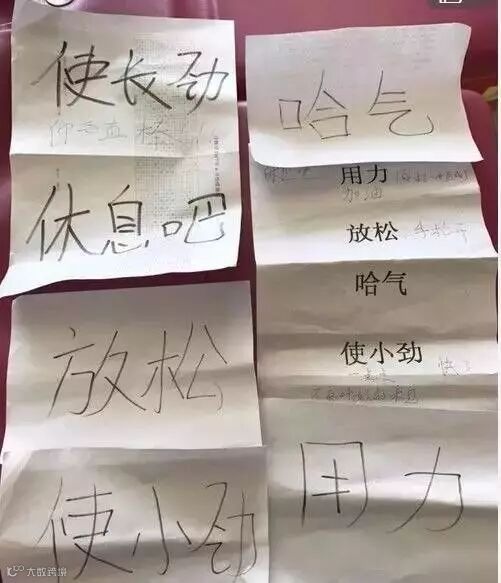 使长劲
休息吧
放松
使小劲
哈气
用力
加油
放松
哈气
使小劲
用力
大数跨境